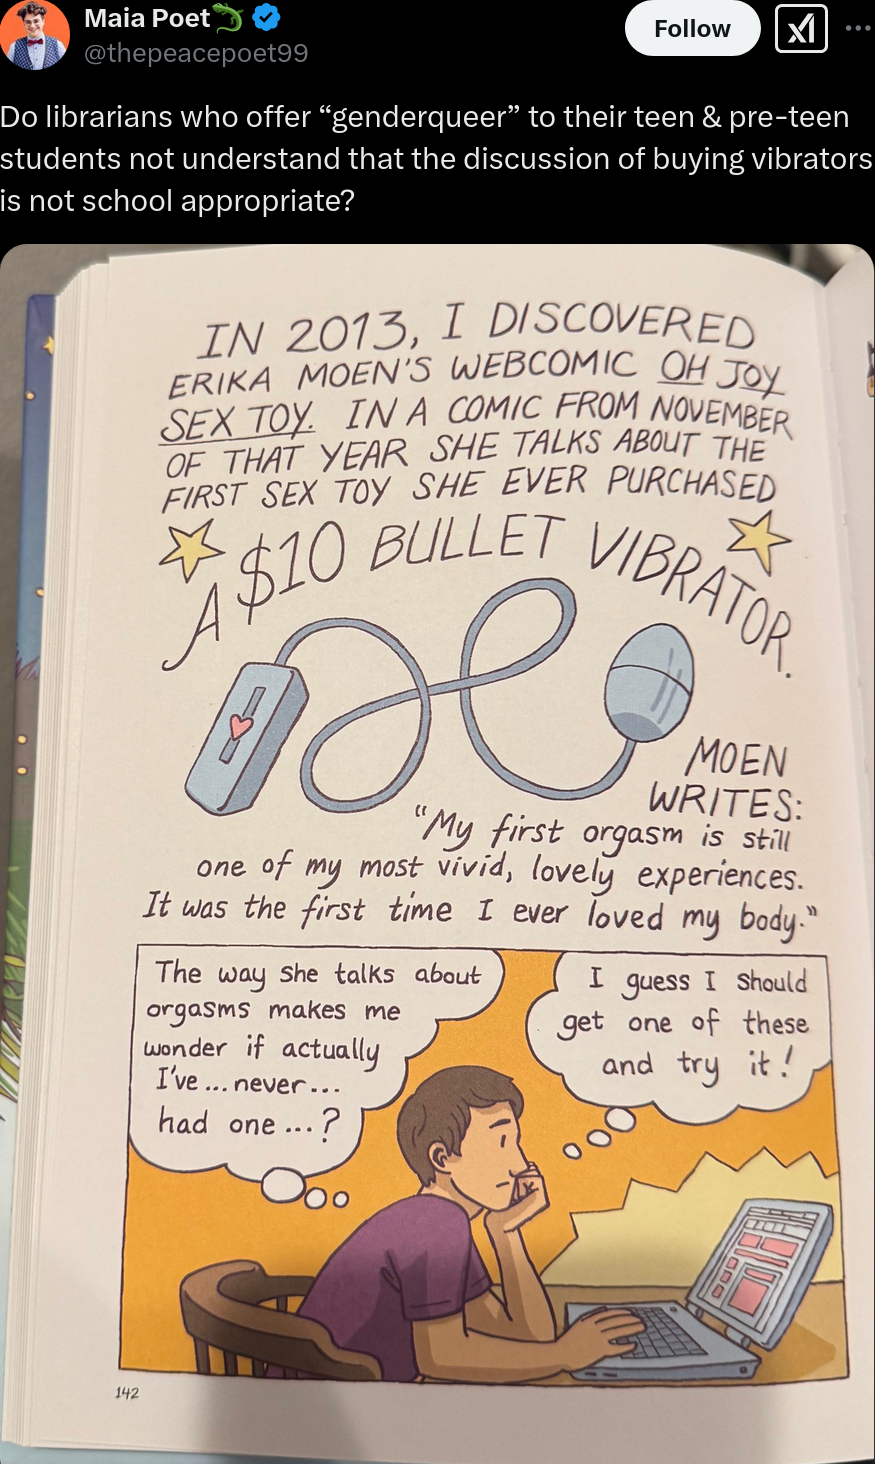 Maia Poet
@thepeacepoet99
Follow
Do librarians who offer “genderqueer” to their teen & pre-teen
students not understand that the discussion of buying vibrators
is not school appropriate?
IN 2013, I DISCOVERED
ERIKA MOEN'S WEBCOMIC OH JOY
SEX TOY. IN A COMIC FROM NOVEMBER
OF THAT YEAR SHE TALKS ABOUT THE
FIRST SEX TOY SHE EVER PURCHASED
A $10 BULLET VIBRATOR.
MOEN
WRITES:
“My first orgasm is still
one of my most vivid, lovely experiences.
It was the first time I ever loved my body.”
The way she talks about
orgasms makes me
wonder if actually
I've ... never ...
had one ...?
I guess I should
get one of these
and try it!
142